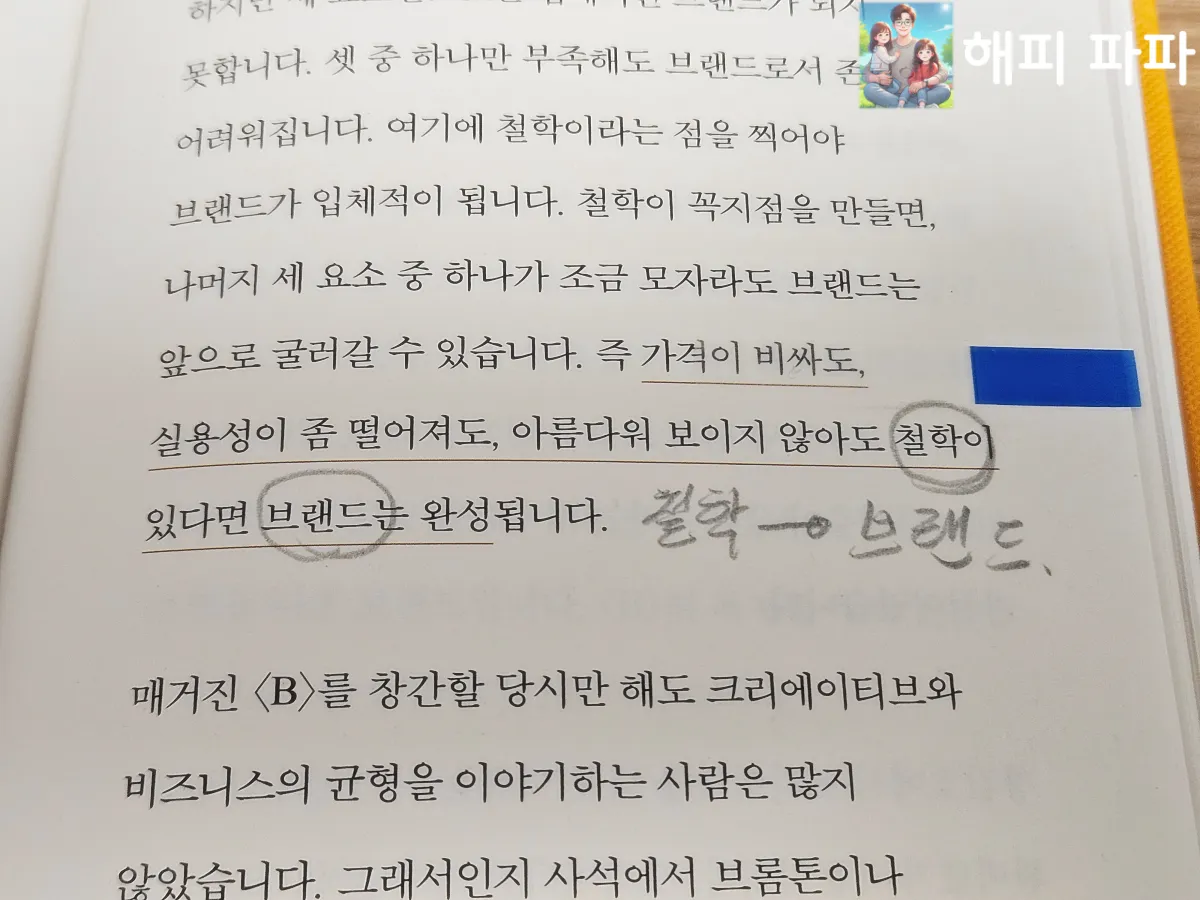 못합니다. 셋 중 하나만 부족해도 브랜드로서
해피 파파
어려워집니다. 여기에 철학이라는 점을 찍어야
브랜드가 입체적이 됩니다. 철학이 꼭지점을 만들면,
나머지 세 요소 중 하나가 조금 모자라도 브랜드는
앞으로 굴러갈 수 있습니다. 즉 가격이 비싸도,
실용성이 좀 떨어져도, 아름다워 보이지 않아도 철학이
있다면 브랜드는 완성됩니다.
철학 → 브랜드.
매거진 〈B〉를 창간할 당시만 해도 크리에이티브와
비즈니스의 균형을 이야기하는 사람은 많지
않았습니다. 그래서인지 사석에서 브롬톤이나